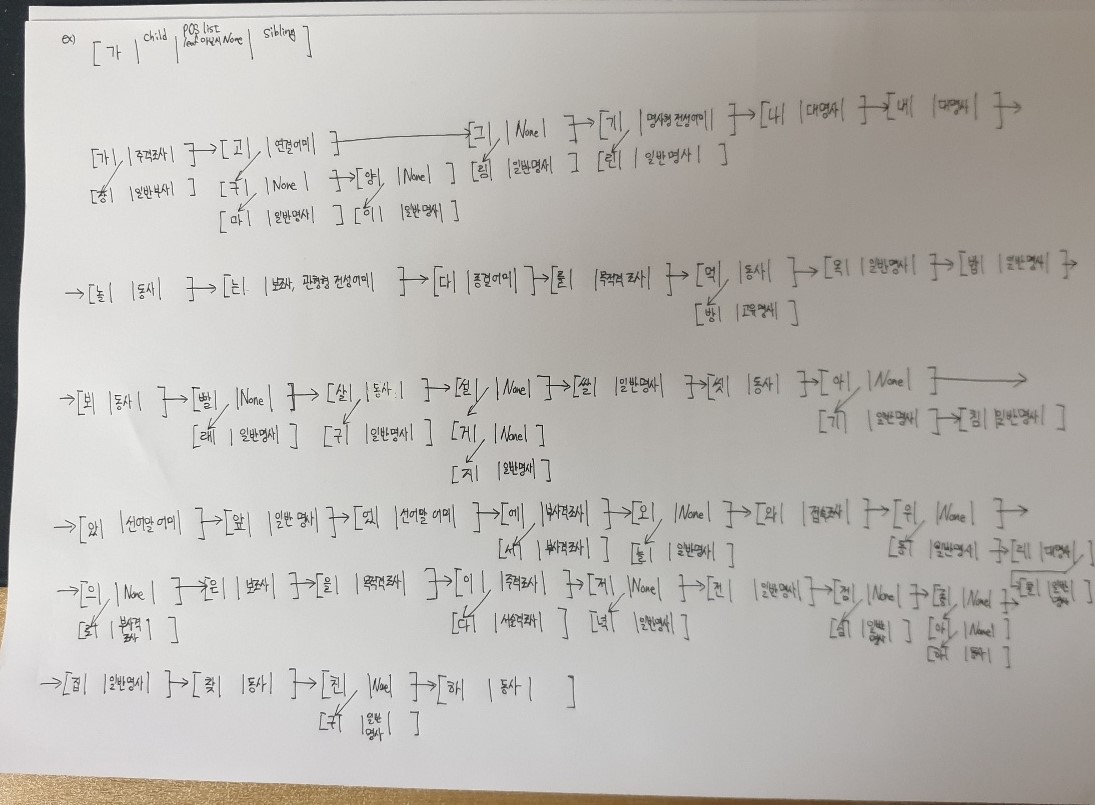 ex) [ 가 | child | POS list leaf 아닐시 None | sibling ]
[그| |None| ] → [기| |명사형 전성어미| ] → [나| |대명사| ] → [내| |대명사| ] →
[가| |주격조사| ] → [고| |연결어미| ]
[장| |일반부사| ] [구| |None| ] → [양| |None| ] [림| |일반명사| ] [린| |일반명사| ]
[마| |일반명사| ] [이| |일반명사| ]
→ [놀| |동사| ] → [는| |보조사, 관형형 전성어미| ] → [다| |종결어미| ] → [를| |목적격 조사| ] → [먹| |동사| ] → [목| |일반명사| ] → [밤| |일반명사| ] →
[방| |고유명사| ]
→ [보| |동사| ] → [빨| |None| ] → [살| |동사| ] → [설| |None| ] → [쌀| |일반명사| ] → [씻| |동사| ] → [아| |None| ] →
[래| |일반명사| ] [구| |일반명사| ] [거| |None| ] [기| |일반명사| ] → [침| |일반명사| ]
[지| |일반명사| ]
→ [았| |선어말 어미| ] → [앞| |일반 명사| ] → [었| |선어말 어미| ] → [에| |부사격조사| ] → [오| |None| ] → [와| |접속조사| ] → [우| |None| ] →
[서| |부사격조사| ] [늘| |일반명사| ] [동| |일반명사| ] → [리| |대명사| ]
→ [의| |None| ] → [은| |보조사| ] → [을| |목적격조사| ] → [이| |주격조사| ] → [저| |None| ] → [전| |일반명사| ] → [점| |None| ] → [| |None| ] → [| |일반명사| ]
[로| |부사격조사| ] [다| |서술격조사| ] [녁| |일반명사| ] [심| |일반명사| ] [아| |None| ]
[하| |동사| ]
→ [집| |일반명사| ] → [찾| |동사| ] → [친| |None| ] → [하| |동사| ]
[구| |일반명사| ]